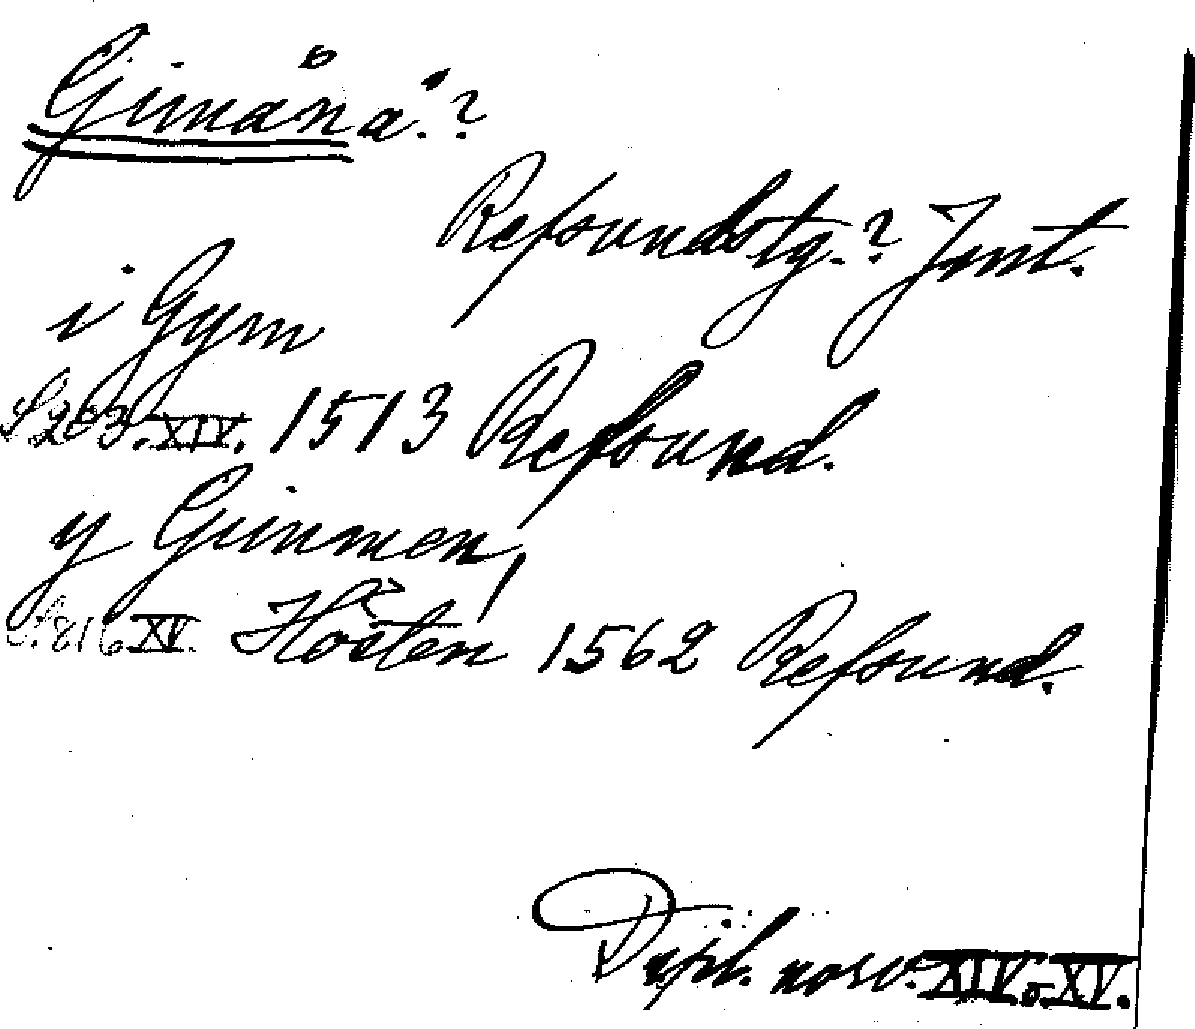 Gimånå.?
Refsundstg.? Jmt.
i Gym
S 203. XIV. 1513 Refsund.
y Gimmen,
S. 816 XV. Hösten 1562 Refsund.
Dipl. norv. XIV. o. XV.